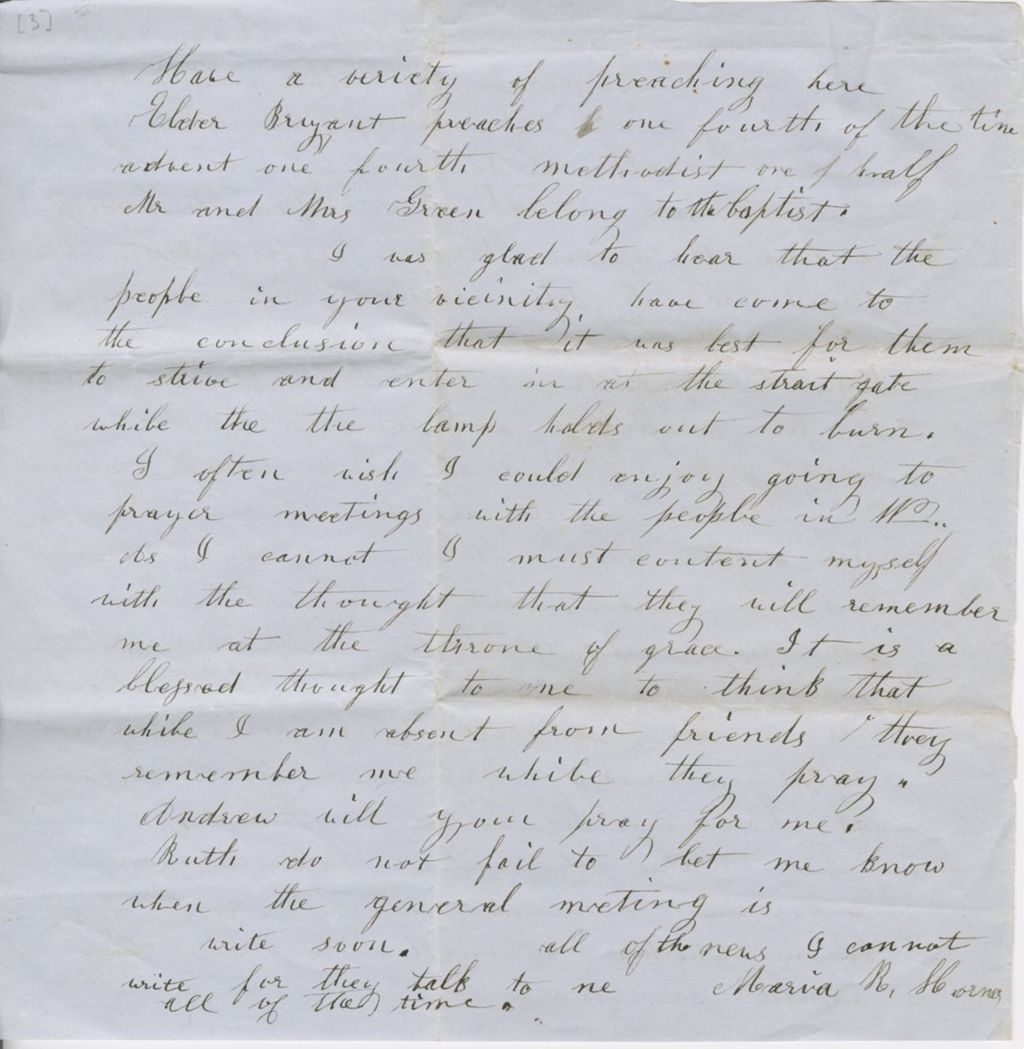 [3]
Have a veriety of preaching here
Elder Bryant preaches one fourth of the time
advent one fourth methodist one half
Mr and Mrs Green belong to the baptist.
I was glad to hear that the
people in your vicinity have come to
the conclusion that it was best for them
to strive and enter in at the strait gate
while the the lamp holds out to burn.
I often wish I could enjoy going to
prayer meetings with the people in W..
As I cannot I must content myself
with the thought that they will remember
me at the throne of grace. It is a
blessed thought to me to think that
while I am absent from friends they
remember me while they pray.
Andrew will you pray for me.
Ruth do not fail to let me know
when the general meeting is
write soon. all of the news I cannot
write for they talk to me Maria R.
all of the time.